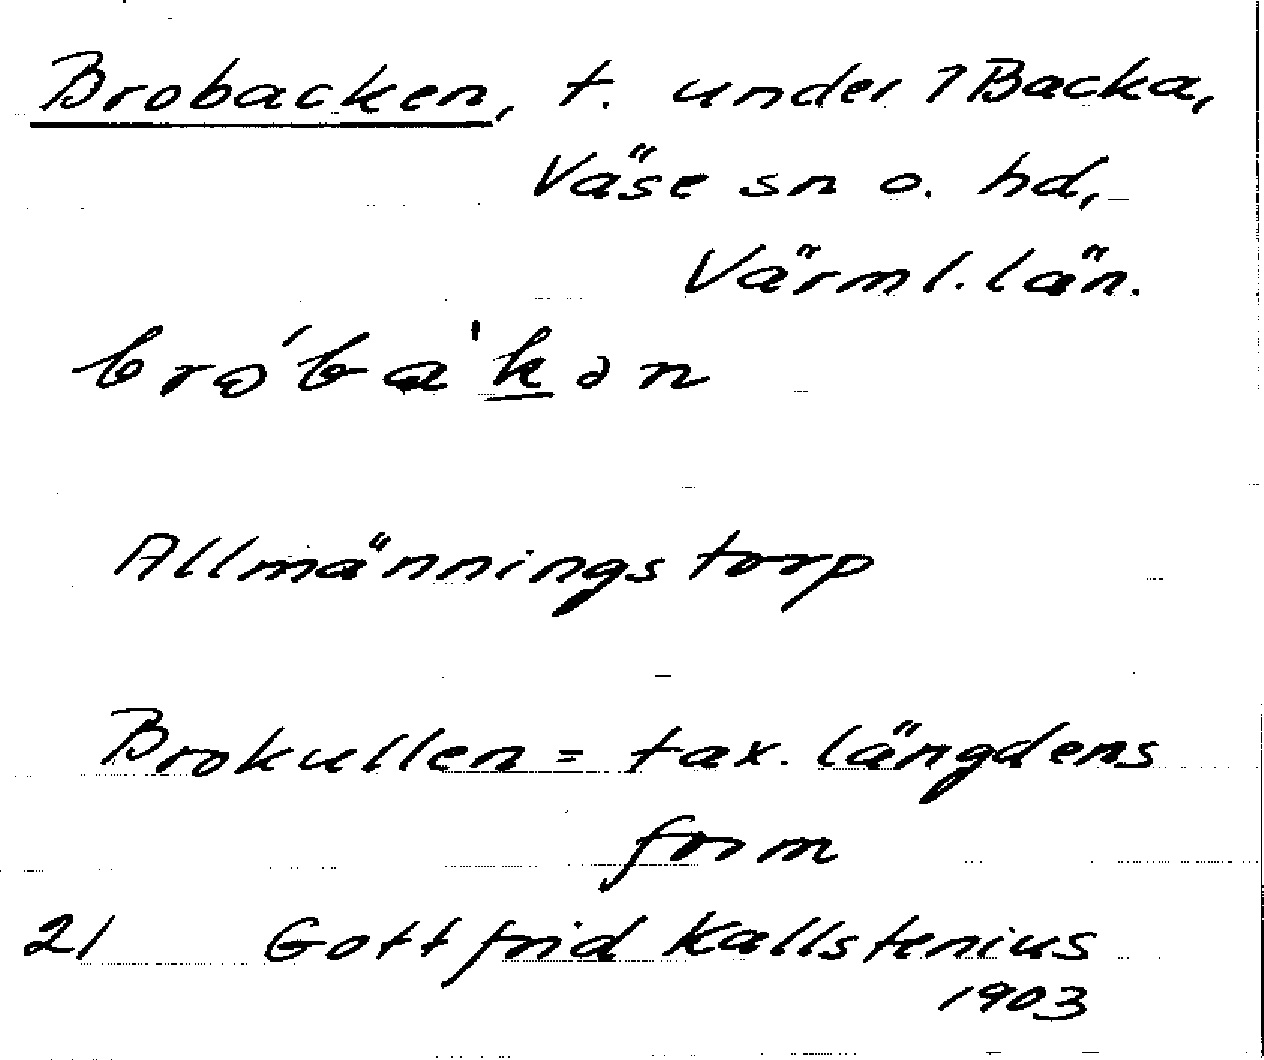 Brobacken, t. under 7 Backa,
Väse sn o. hd,
Värml. län.
bro´ba'kən
Allmänningstorp
Brokullen = tax. längdens
form
21 Gottfrid Kallstenius
1903